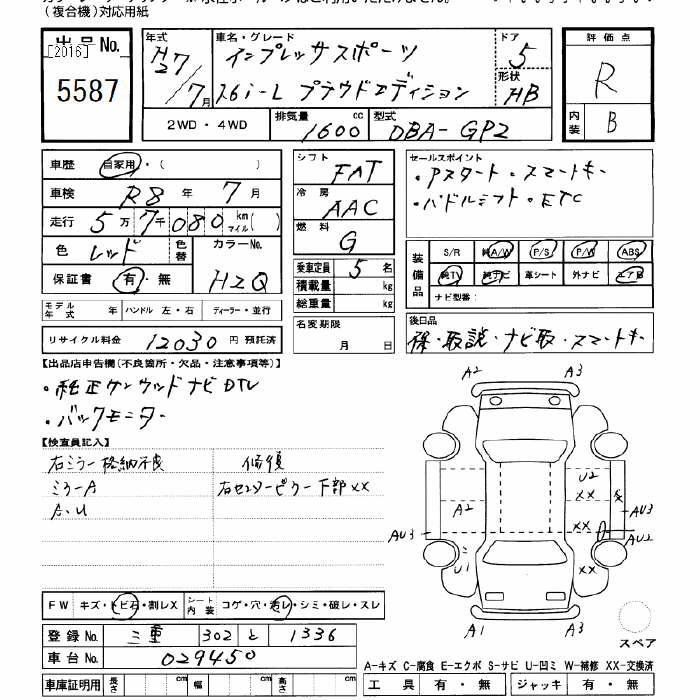 (複合機)対応用紙
出品No.
[2016]
5587
年式
H27/7月
車名・グレード
インプレッサスポーツ
1.6i-L プラウドエディション
ドア
5
形状
HB
評価点
R
内装
B
2WD・4WD
排気量
1600 cc
型式
DBA-GP2
車歴 自家用・( )
車検 R8年 7月
走行 5万7千080 km マイル( )
色 レッド 色替
カラーNo.
H2Q
保証書 有・無
モデル年式 年 ハンドル 左・右 ディーラー・並行
リサイクル料金 12030円 預託済
シフト
FAT
冷房
AAC
燃料
G
乗車定員 5名
積載量 kg
総重量 kg
名変期限
月 日
セールスポイント
・Pスタート・スマートキー
・パドルシフト・ETC
装備品
S/R 純A/W P/S P/W ABS
純TV 純ナビ 革シート 外ナビ エアB
ナビ型番:
後日品
保・取説・ナビ取・スマートキー
【出品店申告欄(不良箇所・欠品・注意事項等)】
・純正ケンウッドナビDTV
・バックモニター
【検査員記入】
右ミラー格納不良
ミラーA
A・U
修復
右センターピラー下部XX
A2 A3
U2
XX
A2
XX
AU3
AU3
AU2
U1
XX
A1 A3
スペア
FW キズ・トビ石・割レX
シート内装 コゲ・穴・汚レ・シミ・破レ・スレ
登録No. 三重 302 と 1336
車台No. 029450
車庫証明用 長さ cm 幅 cm 高さ cm
A-キズ C-腐食 E-エクボ S-サビ U-凹ミ W-補修 XX-交換済
工具 有・無 ジャッキ 有・無